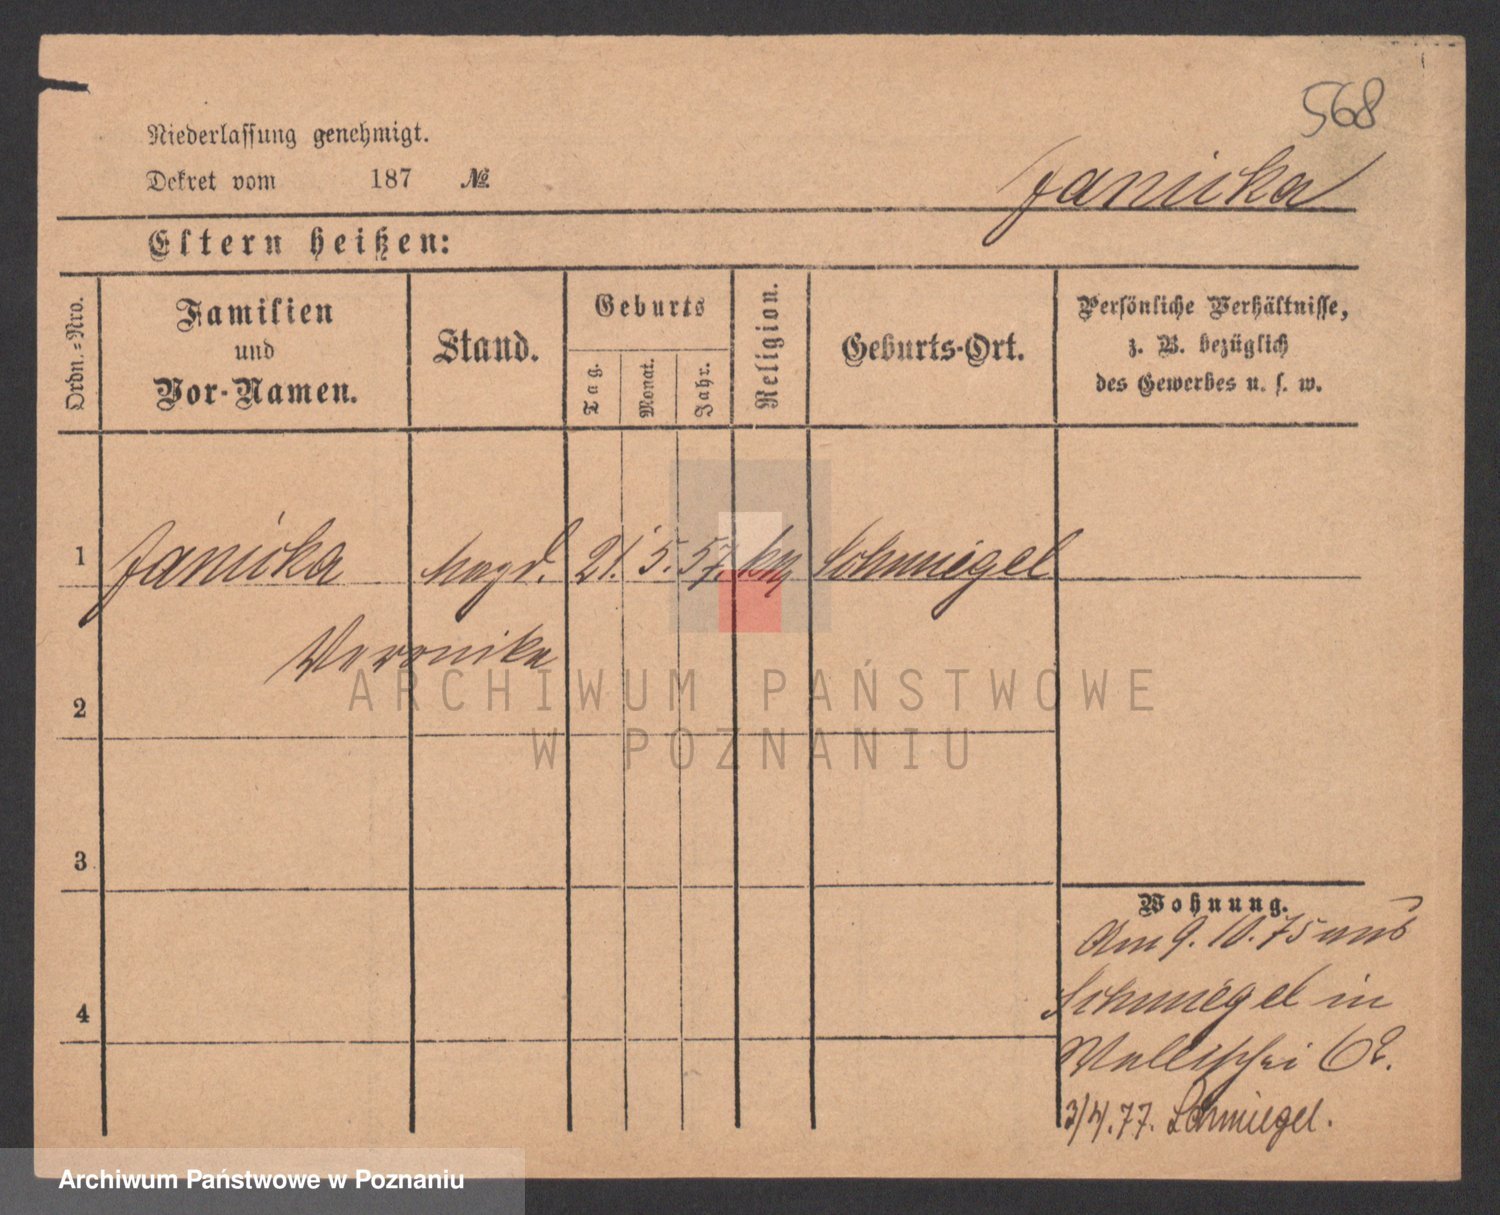 568
Niederlassung genehmigt.
Dekret vom 187 №
Janicka
Eltern heißen:
Ordn.-Nro.
Familien
und
Vor-Namen.
Stand.
Geburts
Tag.
Monat.
Jahr.
Religion.
Geburts-Ort.
Persönliche Verhältnisse,
z. B. bezüglich
des Gewerbes u. s. w.
1 Janicka Magd. 21. 5. 57. Schmiegel
Veronika
2
3
4
Wohnung.
Am 9. 10. 75 aus
Schmiegel in
Wallischei 62.
3/4.77. Schmiegel.
ARCHIWUM PAŃSTWOWE
W POZNANIU
Archiwum Państwowe w Poznaniu